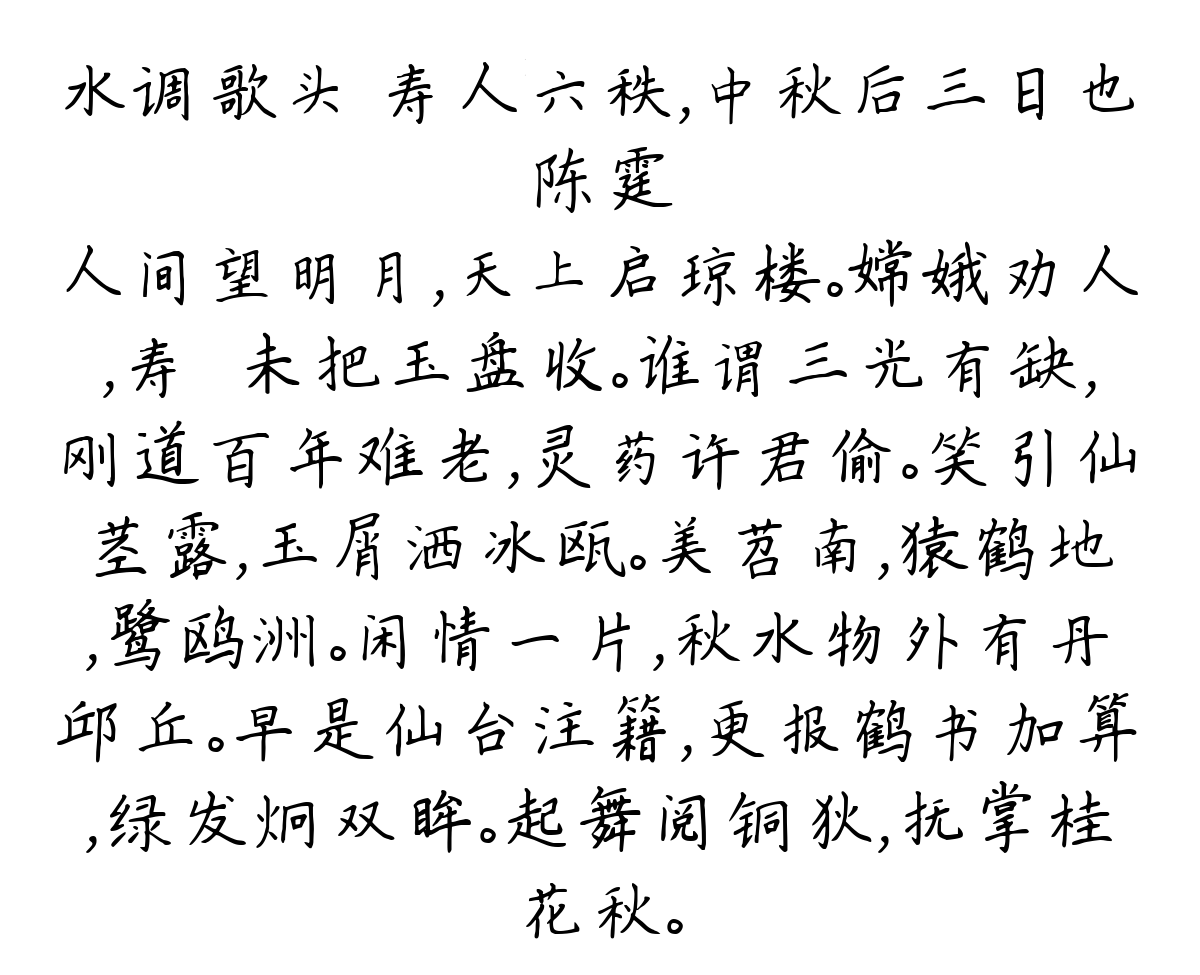 水调歌头 寿人六秩,中秋后三日也
陈霆
人间望明月,天上启琼楼。嫦娥劝人
,寿 未把玉盘收。谁谓三光有缺,
刚道百年难老,灵药许君偷。笑引仙
茎露,玉屑洒冰瓯。美苕南,猿鹤地
,鹭鸥洲。闲情一片,秋水物外有丹
邱丘。早是仙台注籍,更报鹤书加算
,绿发炯双眸。起舞阅铜狄,抚掌桂
花秋。